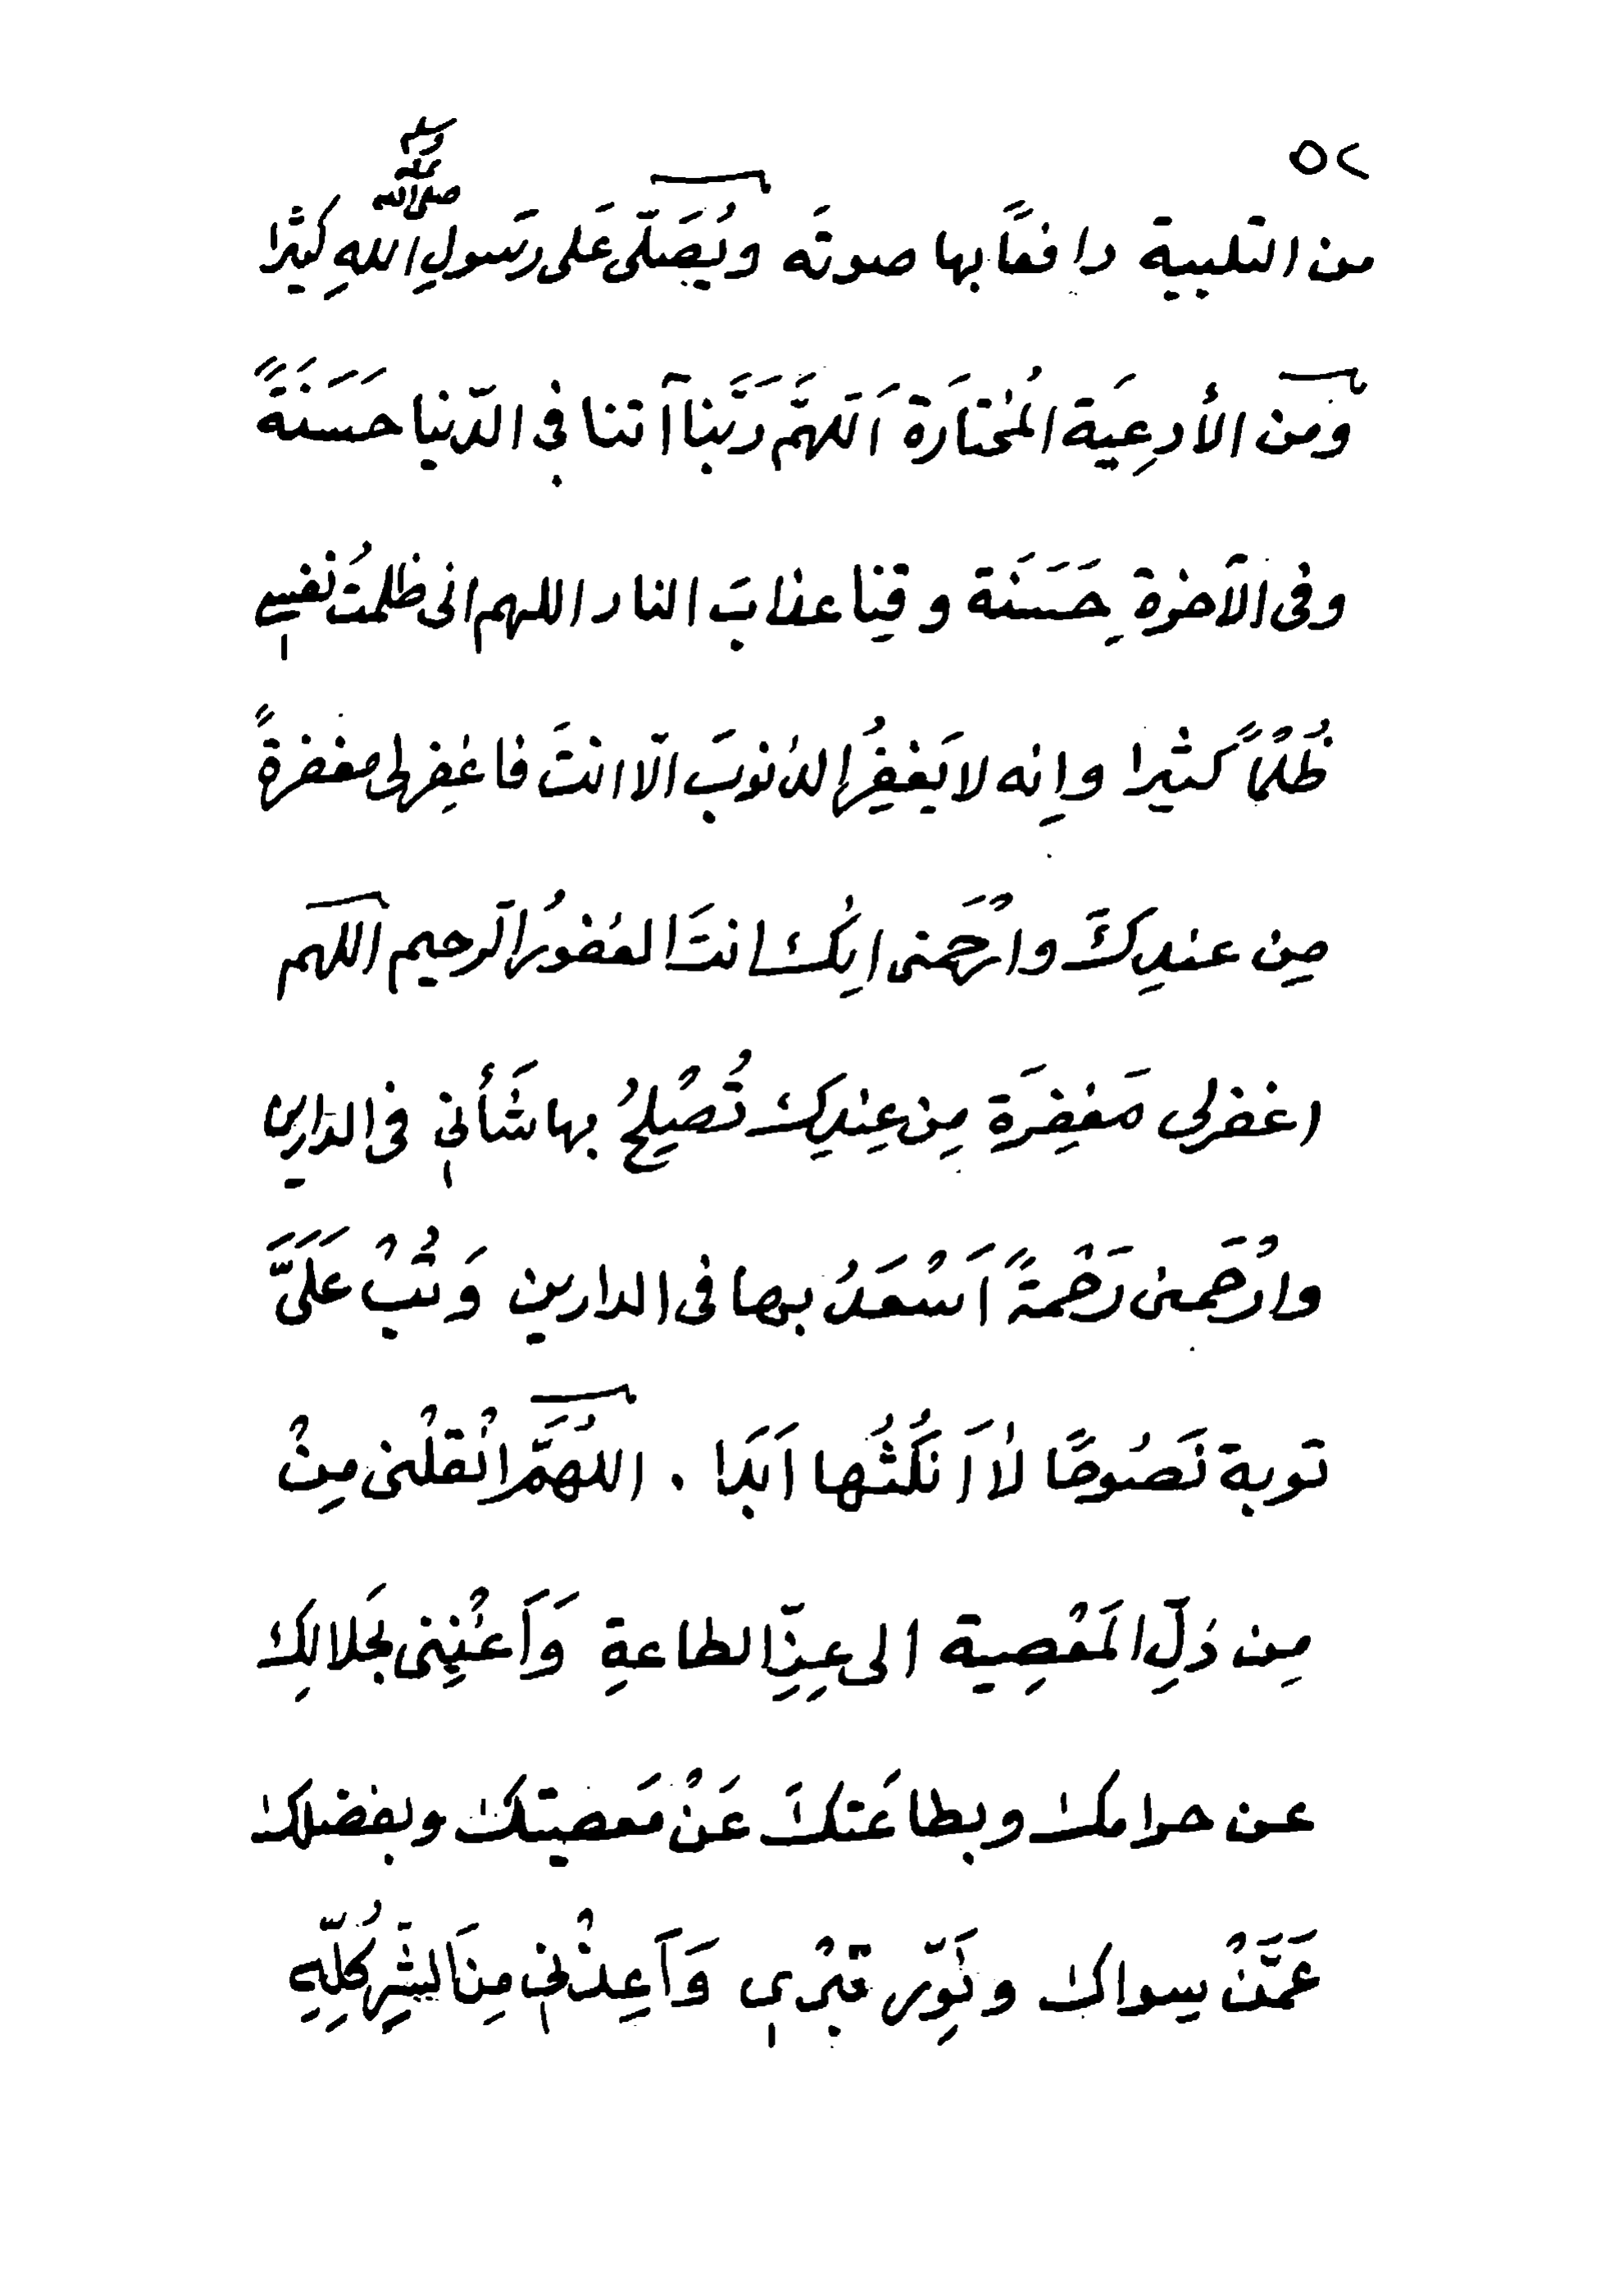 ٥٢
من التلبية رافعًا بها صوتَه ويُصَلّى عَلى رسَولِ اللهِ صلى الله عليه وسلم كثيرًا
ومن الأدعِيَة المُختاَرة اَللهمَّ رَبَّنا آتنا فى الدّنيا حَسَنَةً
وفى الآخرة حَسَنَة وقِنا عذابَ النار اللهم انى ظلمتُ نفسِى
ظُلْمًا كثيرا وإنه لا يَغفِرُ الذنوبَ الّا انتَ فاغفِرلى مغفرةً
مِن عندِكَ وارْحَمنى انِكَ انتَ الغفورُ الرحيم اللهم
اغفرلى مَغفِرَة مِن عِندِكَ تُصْلِحُ بها شَأنِى فى الدارين
وارْحَمنى رَحْمةً اَسْعَدُ بها فى الدارين وَتُبْ عَلَىَّ
توبة نَصُوحًا لا اَنكُثُها اَبَدَا . اللهُمَّ انْقلْنى مِنْ
مِن ذلِّ المَعْصِية الى عِزِّ الطاعةِ وَاَغْنِنى بجَلالِك
عن حرامك وبطاعَتكَ عَنْ مَعصيتك وبفضلك
عَمَّنْ سِواك ونَوِّر قَبْرِى وَاَعِذْنِى مِنَ الشرِّ كُلِّهِ